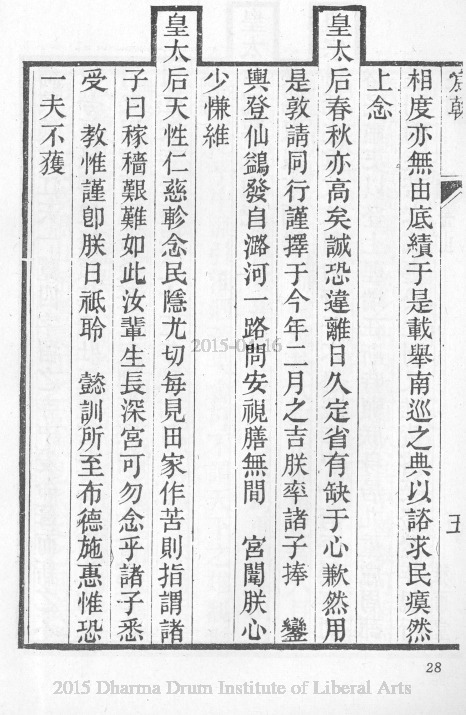 五
相度亦無由底績于是載舉南巡之典以諮求民瘼然
上念
皇太后春秋亦高矣誠恐違離日久定省有缺于心歉然用
是敦請同行謹擇于今年二月之吉朕率諸子捧　鑾
輿登仙鷁發自潞河一路問安視膳無間　宮闈朕心
少慊維
皇太后天性仁慈軫念民隱尤切每見田家作苦則指謂諸
子曰稼穡艱難如此汝輩生長深宮可勿念乎諸子悉
受　教惟謹卽朕日祗聆　懿訓所至布德施惠惟恐
一夫不獲
2015-04-16
28
2015 Dharma Drum Institute of Liberal Arts